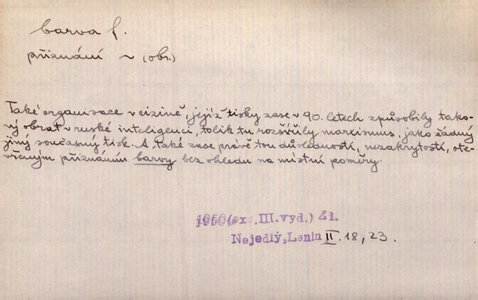 barva f.
přiznání ~ (obr.)
Také organisace v cizině, jejíž tisky zase v 90. letech způsobily tako-
vý obrat v ruské inteligenci, tolik tu rozšířily marxismus, jako žádný
jiný současný tisk. A také zase právě tou důsledností, nezakrytostí, ote-
vřeným přiznáním barvy bez ohledu na místní poměry.
1950(ex. III.vyd.) Zl.
Nejedlý, Lenin II. 18, 23.